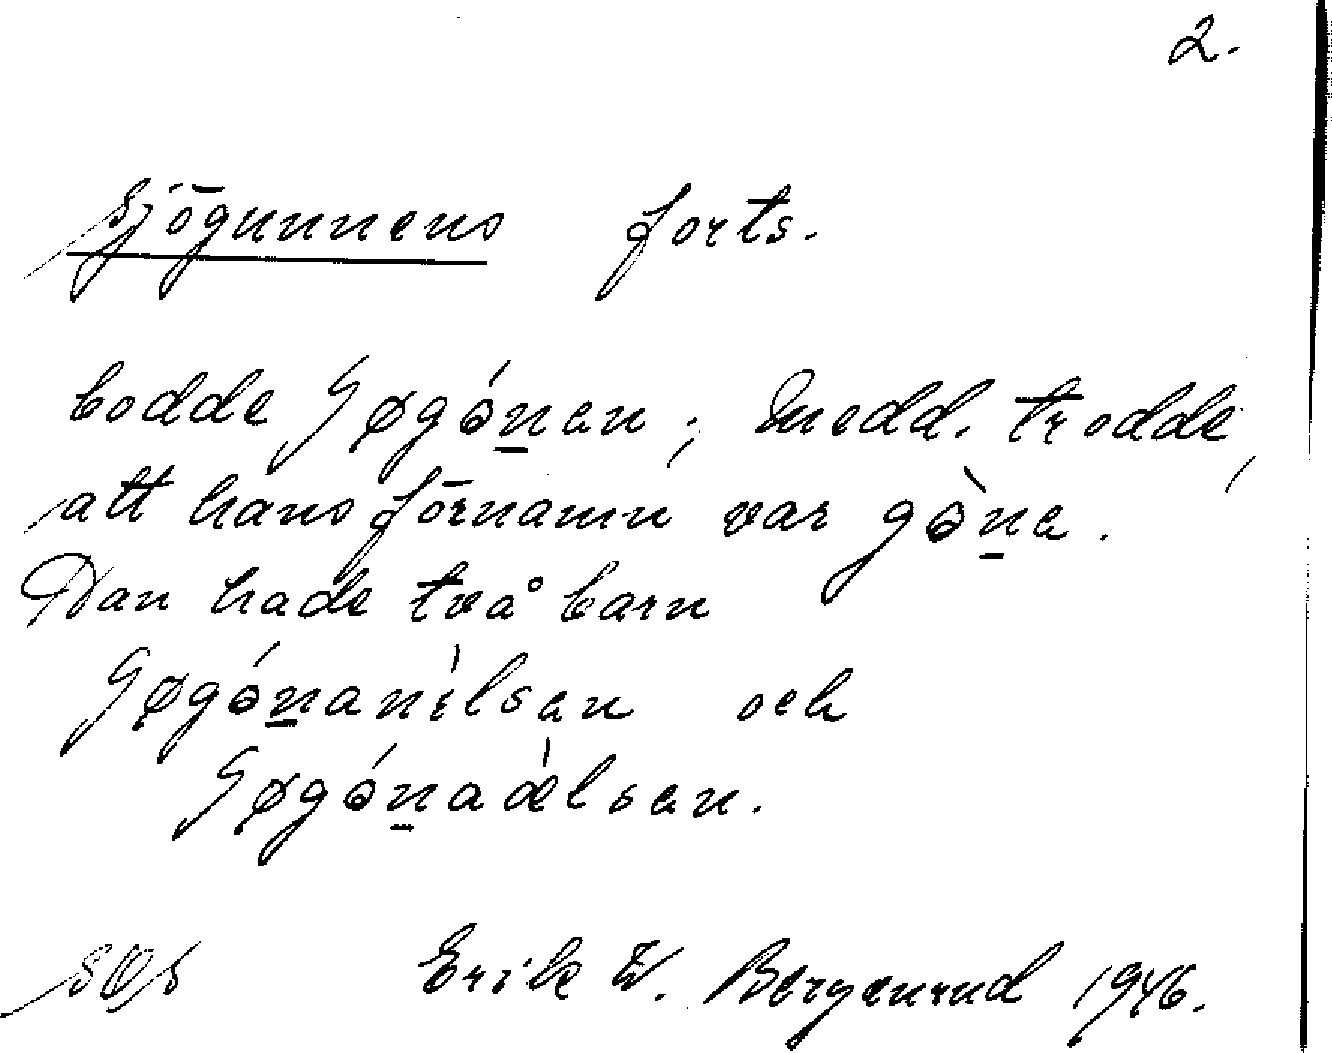 2.
Sjögunnens forts.
bodde Søgónen; Medd. trodde,
att hans förnamn var gòne.
Dan hade två barn
Søgónanilsen och
Søgónaòlsen.
SOÅ Erik W. Bergenrud 1946.